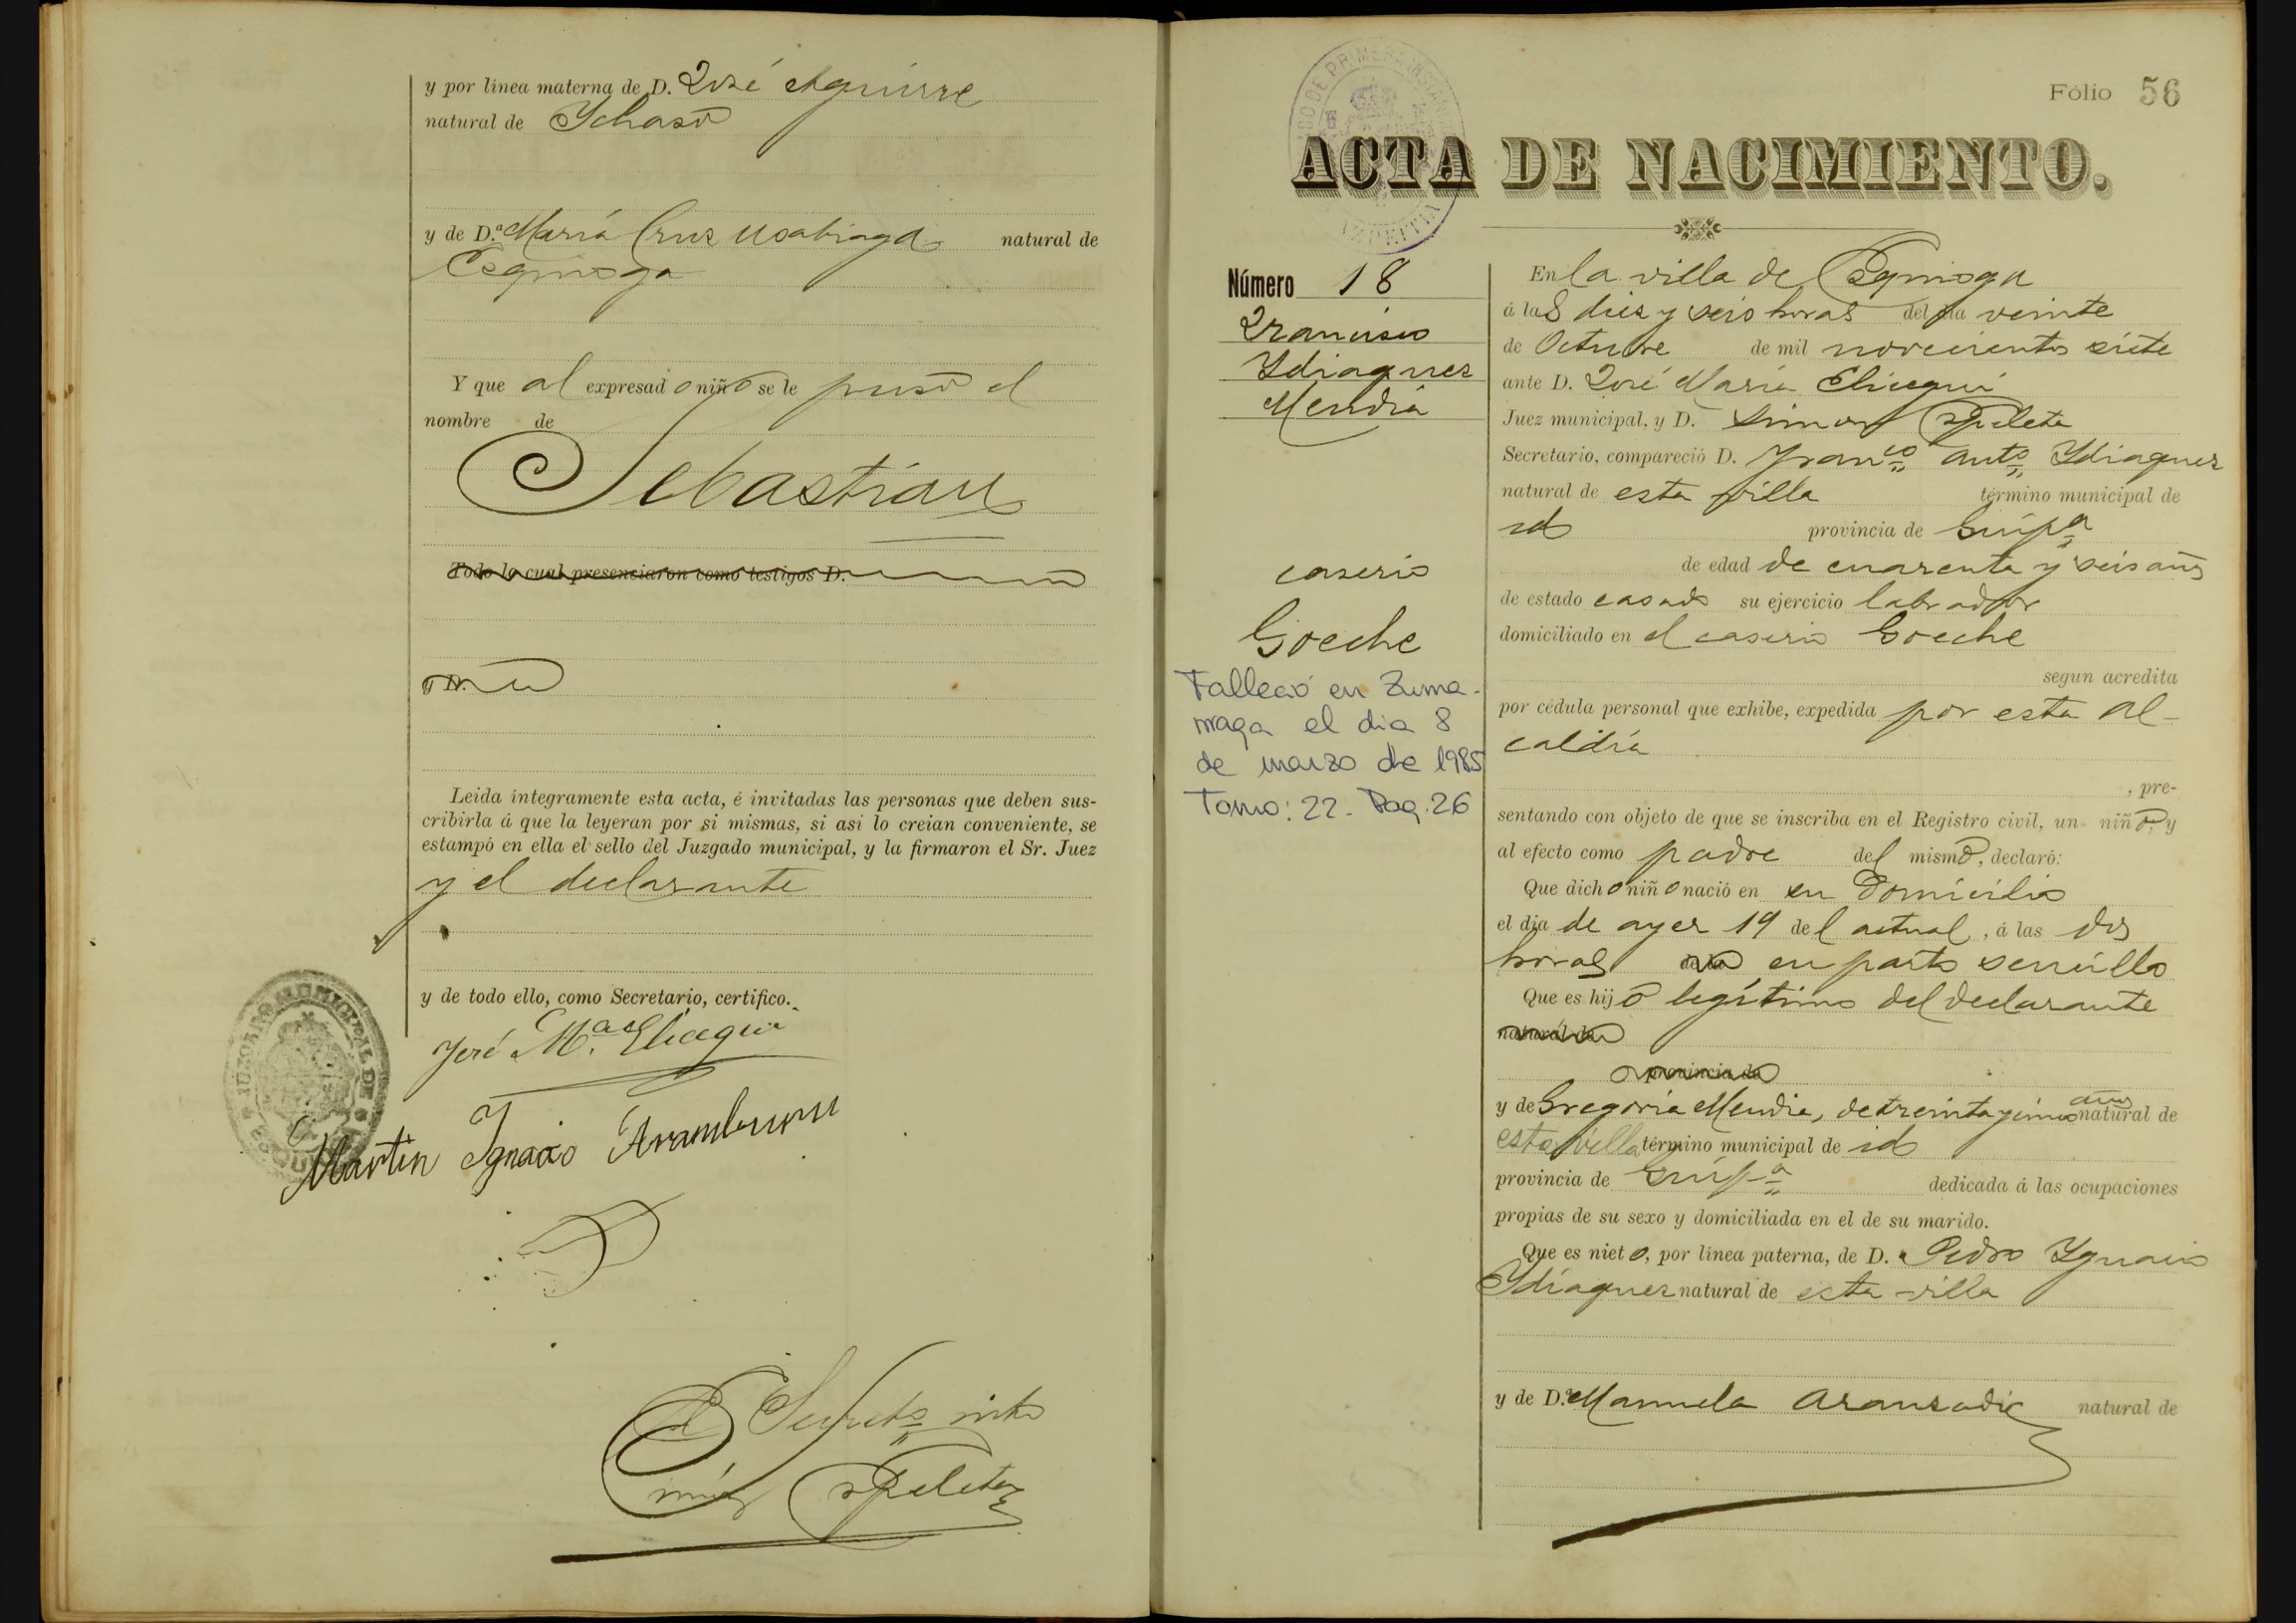 y por línea materna de D. José Aguirre
natural de Ichaso
y de D.ª María Cruz Usabiaga natural de
Ezquioga
Y que al expresado niño se le puso el
nombre de
Sebastián
Todo lo cual presenciaron como testigos D.
y D.
Leida íntegramente esta acta, é invitadas las personas que deben sus-
cribirla á que la leyeran por si mismas, si asi lo creian conveniente, se
estampó en ella el sello del Juzgado municipal, y la firmaron el Sr. Juez
y el declarante
y de todo ello, como Secretario, certifico.
José M.ª Elicegui
Martin Ignacio Aramburu
El Secret.º int.º
Apeleta
JUZGADO MUNICIPAL DE
JUZGADO DE PRIMERA INSTANCIA
AZPEITIA
Fólio 56
ACTA DE NACIMIENTO.
Número 18
Francisco
Ydiaquez
Mendia
caserio
Goeche
Falleció en Zuma-
rraga el dia 8
de marzo de 1985
Tomo: 22. Pag. 26
En la villa de Ezquioga
á las diez y seis horas del dia veinte
de Octubre de mil novecientos siete
ante D. José María Elicegui
Juez municipal, y D. Simon Apeleta
Secretario, compareció D. Franco Anto Ydiaquez
natural de esta villa término municipal de
id provincia de Guipa
de edad de cuarenta y seis años
de estado casado su ejercicio labrador
domiciliado en el caserio Goeche
segun acredita
por cédula personal que exhibe, expedida por esta Al-
caldía
, pre-
sentando con objeto de que se inscriba en el Registro civil, un niño, y
al efecto como padre del mismo, declaró:
Que dicho niño nació en su domicilio
el dia de ayer 19 del actual, á las dos
horas de la en parto sencillo
Que es hijo legítimo del declarante
natural de
provincia de
y de Gregoria Mendia, de treinta y cinco años natural de
esta villa término municipal de id
provincia de Guipa dedicada á las ocupaciones
propias de su sexo y domiciliada en el de su marido.
Que es nieto, por línea paterna, de D. Pedro Ygnacio
Ydiaquez natural de esta villa
y de D.ª Manuela Aranzadi natural de